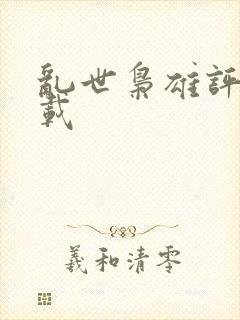 亂世梟雄評
載
羲和清零